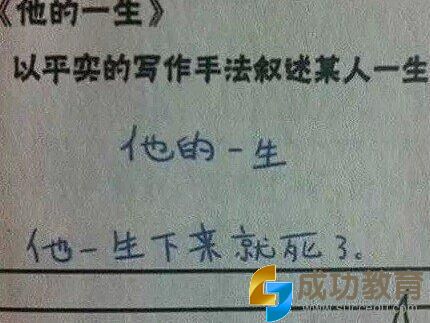 《他的一生》
以平实的写作手法叙述某人一生
他的一生
他一生下来就死了。
成功教育